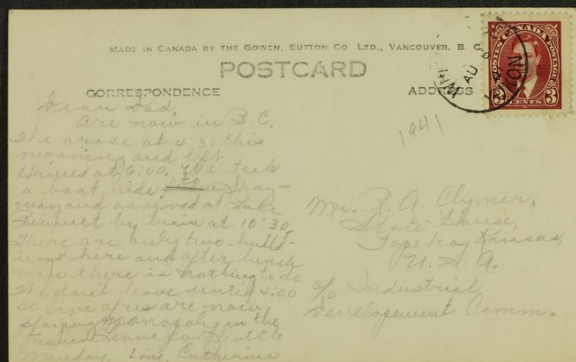 MADE IN CANADA BY THE GOWEN, SUTTON CO LTD., VANCOUVER, B. C.
POSTCARD
CORRESPONDENCE
ADDRESS
POSTES CANADA POSTAGE
3 CENTS 3
AU
YUKON
1941
Dear Dad,
Are now in B.C.
We arose at 4:30 this
morning and left
at 6:00. We took
a boat ride to Skag-
way and arrived at Lake
Bennett by train at 10:30.
There are only two build-
ings here and after lunch
there is nothing to do
We don't leave until 2:00
so five of us are now
playing monopoly in the
train. Leave for Seattle
Monday. Love, Catherine
Mr. R. A. Clymer,
State House,
Topeka, Kansas,
U. S. A.
c/o Industrial
Development Comm.